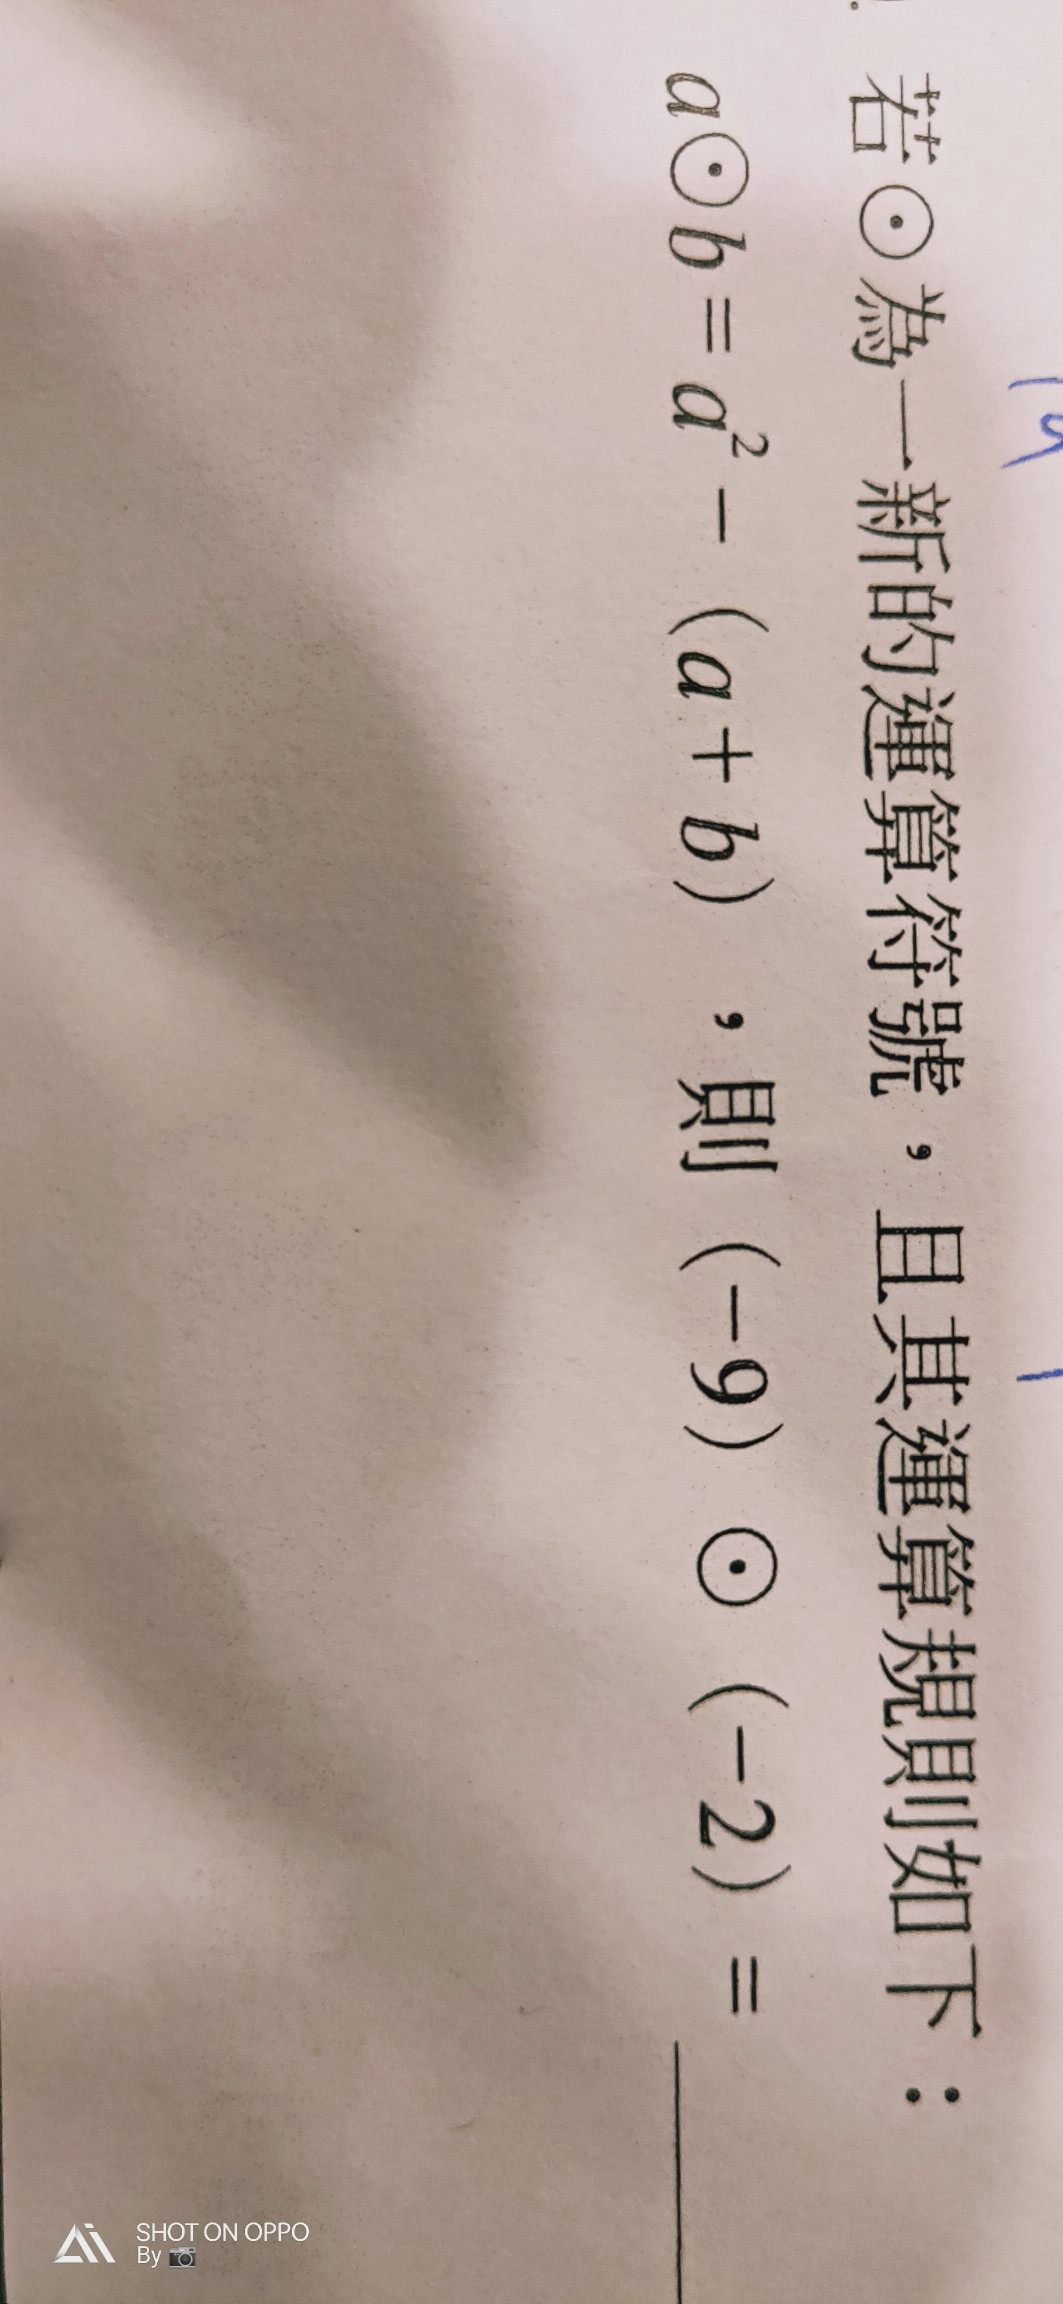 若⊙為一新的運算符號，且其運算規則如下：
a⊙b＝a²－(a＋b)，則(－9)⊙(－2)＝
SHOT ON OPPO
By